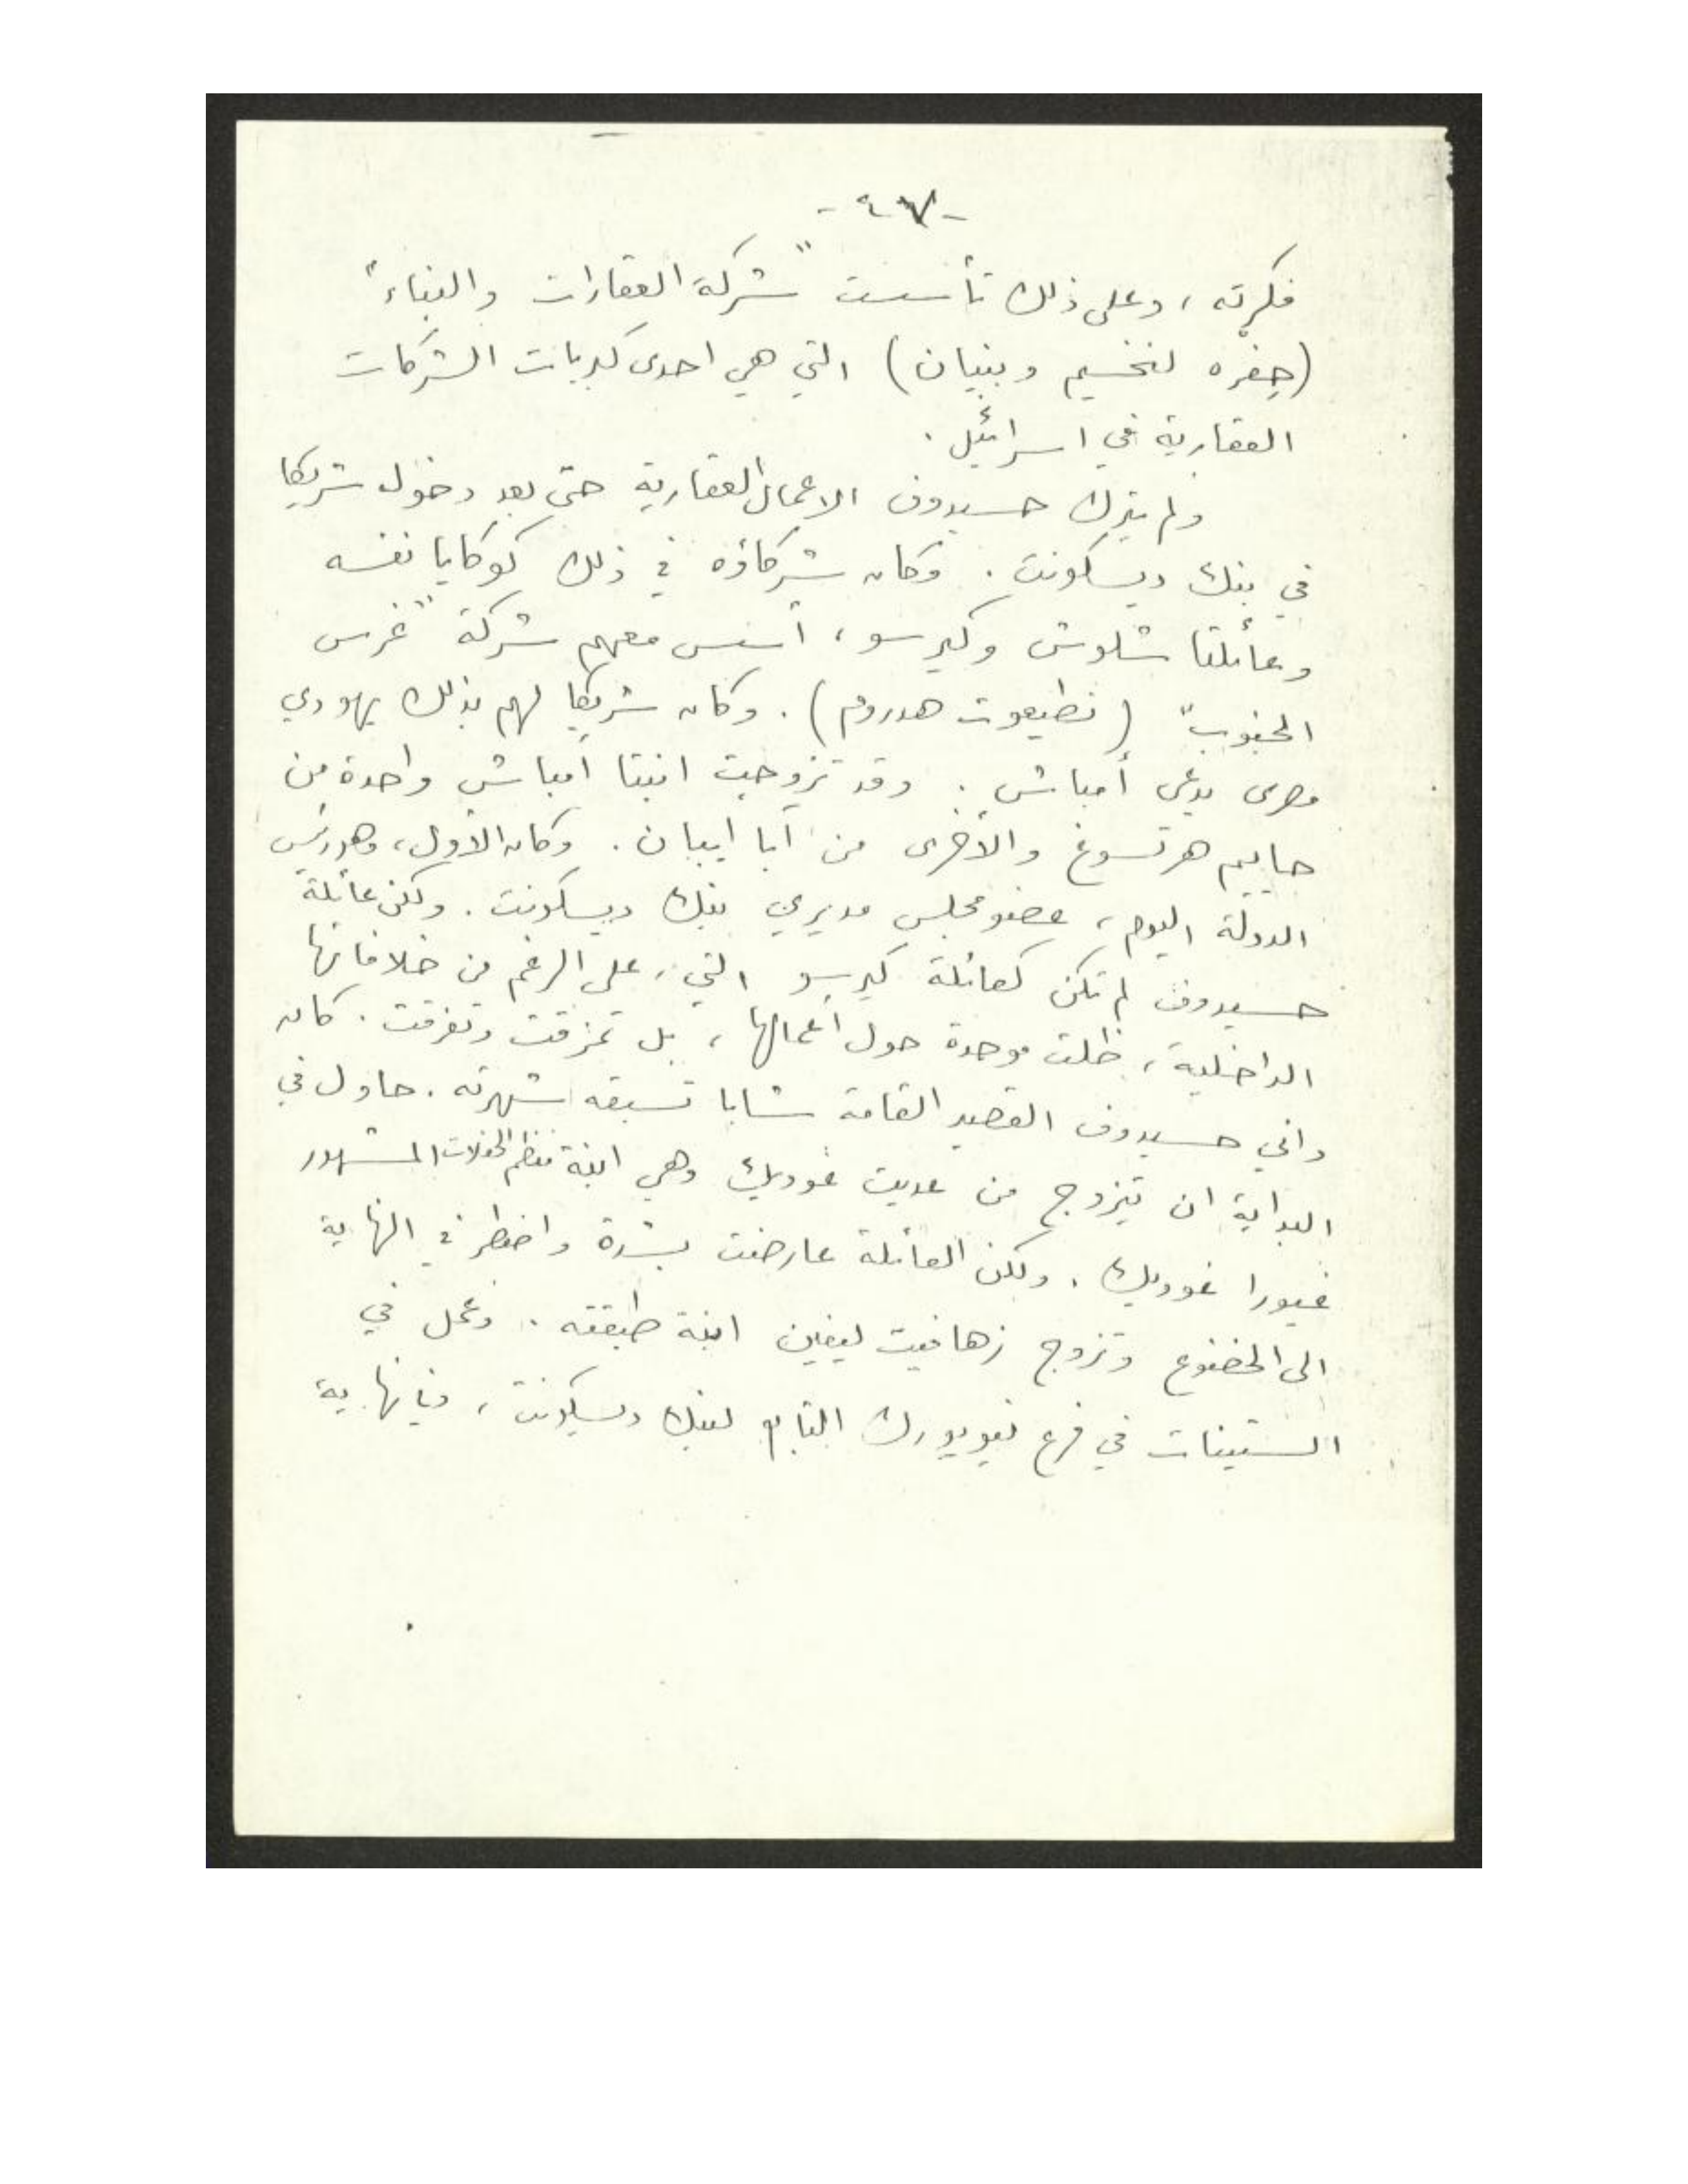 فكرته ، وعلى ذلك تأسست "شركة العقارات والبناء"
(حِفره لنخسيم وبنيان) التي هي احدى كبريات الشركات
العقارية في اسرائيل .
ولم يترك حسيدوف الاعمال العقارية حتى بعد دخوله شريكا
في بنك ديسكونت . وكان شركاؤه في ذلك كوكايا نفسه
وعائلتا شلوش وكيرسو ، أسس معهم شركة "غرس
الجنوب" (نطيعوت هدروم) . وكان شريكا لهم بذلك يهودي
مصري يدعى أمباش . وقد تزوجت ابنتا أمباش واحدة من
حاييم هرتسوغ والأخرى من آبا ايبان . وكان الأول ، وهو رئيس
الدولة اليوم ، عضو مجلس مديري بنك ديسكونت . ولكن عائلة
حسيدوف لم تكن كعائلة كيرسو التي ، على الرغم من خلافاتها
الداخلية ، ظلت موحدة حول أعمالها ، بل تمزقت وتفرقت . كان
داني حسيدوف القصير القامة شابا تسبقه شهرته . حاول في
البداية ان يتزوج من عديت غوديك وهي ابنة منظم الحفلات المشهور
غيورا غوديك . ولكن العائلة عارضت بشدة واضطر في النهاية
الى الخضوع وتزوج زهافيت ليفين ابنة طبقته . وعمل في
الستينات في فرع نيويورك التابع لبنك ديسكونت ، وفي نهاية